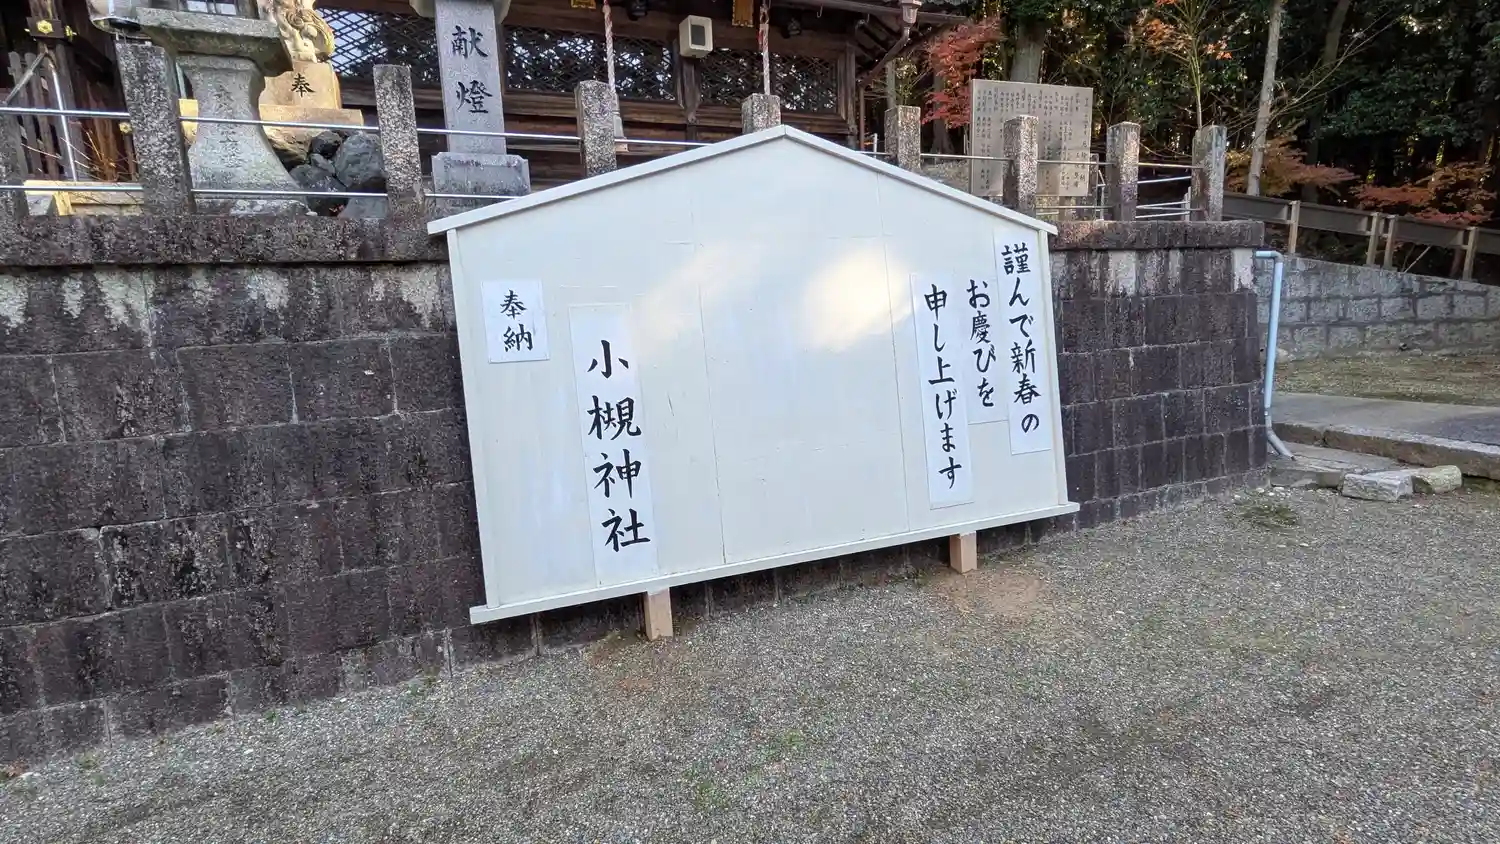 献燈
奉
謹んで新春の
お慶びを
申し上げます
小槻神社
奉納